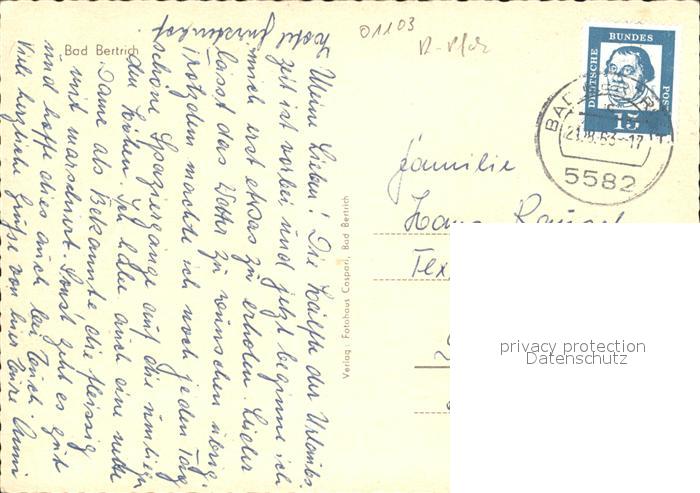 01103
R-Pfalz
Bad Bertrich
Hotel Fürstenhof
Meine Lieben! Die Hälfte der Urlaubs-
zeit ist vorbei, und jetzt beginne ich
mich erst etwas zu erholen. Leider
lässt das Wetter zu wünschen übrig.
Trotzdem machte ich noch jeden Tag
schöne Spaziergänge auf die umliegen
den Höhen. Ich habe auch eine nette
Dame als Bekannte die fleissig
mit marschiert. Sonst geht es gut
und hoffe dies auch bei Euch.
Viele herzliche Grüße von hier Eure Anni
Verlag: Fotohaus Caspari, Bad Bertrich
DEUTSCHE BUNDES POST
15
BAD BERTRICH
21.8.63-17
5582
Familie
Hans
Tex
privacy protection
Datenschutz